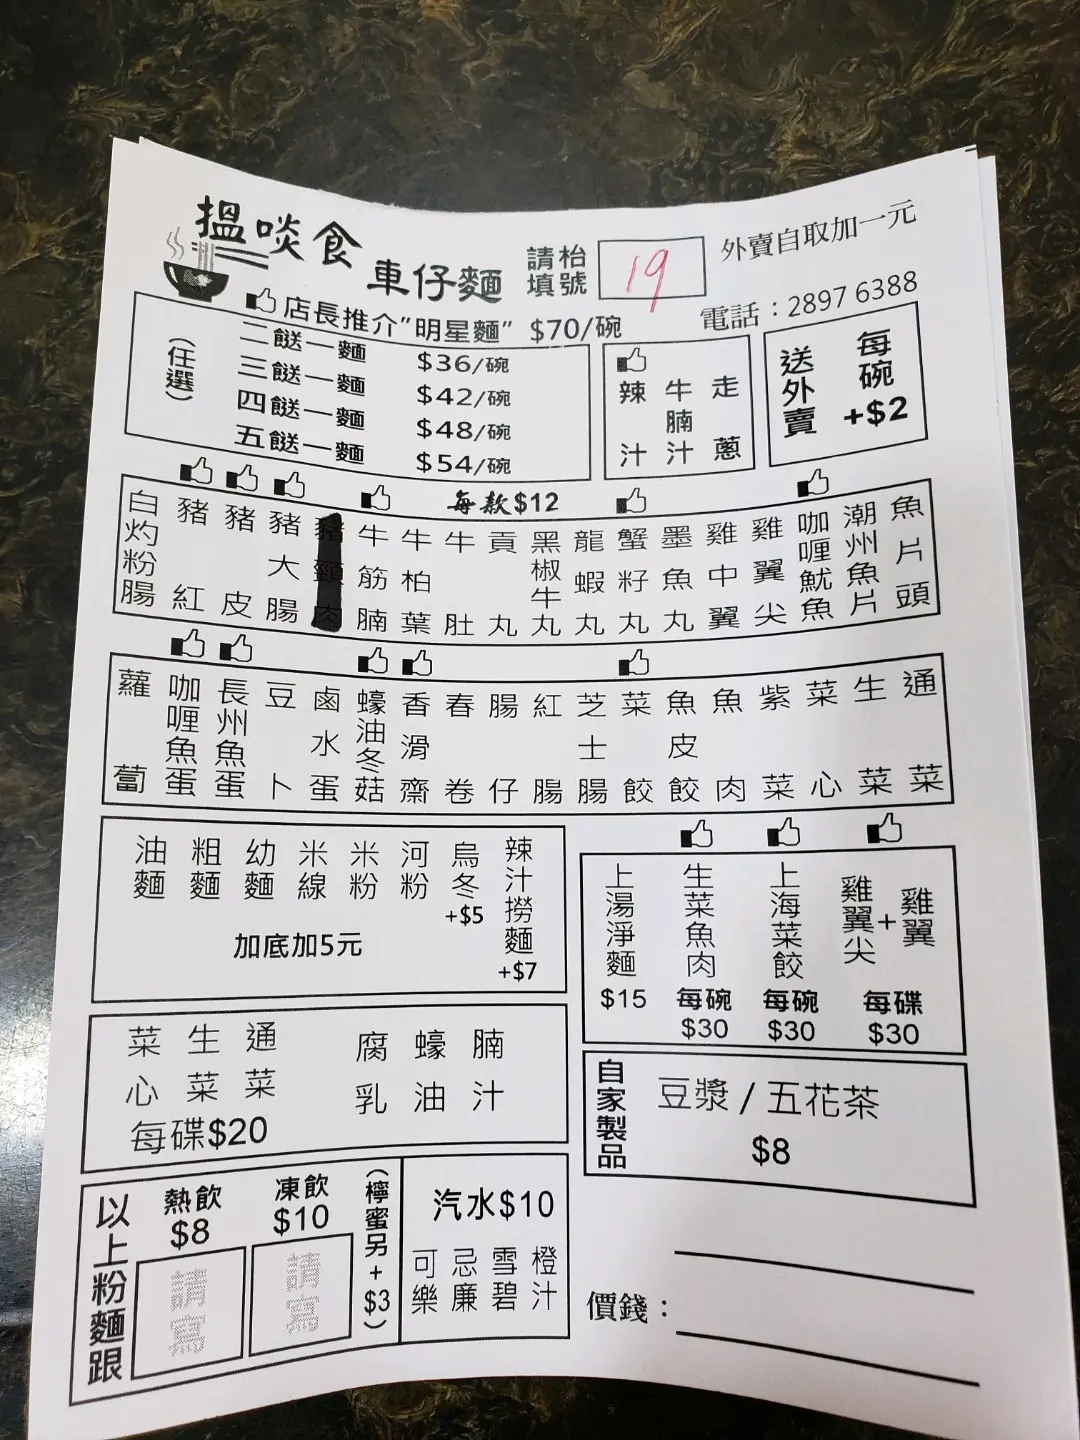 搵啖食 車仔麵
請填枱號
19
外賣自取加一元
電話：2897 6388
店長推介"明星麵" $70/碗
(任選)
二餸一麵 $36/碗
三餸一麵 $42/碗
四餸一麵 $48/碗
五餸一麵 $54/碗
辣汁
牛腩汁
走蔥
送外賣
每碗
+$2
每款$12
白灼粉腸
豬紅
豬皮
豬大腸
豬頸肉
牛筋腩
牛柏葉
牛肚
貢丸
黑椒牛丸
龍蝦丸
蟹籽丸
墨魚丸
雞中翼
雞翼尖
咖喱魷魚
潮州魚片
魚片頭
蘿蔔
咖喱魚蛋
長州魚蛋
豆卜
鹵水蛋
蠔油冬菇
香滑齋
春卷
腸仔
紅腸
芝士腸
菜餃
魚皮餃
魚肉
紫菜
菜心
生菜
通菜
油麵
粗麵
幼麵
米線
米粉
河粉
烏冬
+$5
辣汁撈麵
+$7
加底加5元
上湯淨麵
$15
生菜魚肉
每碗
$30
上海菜餃
每碗
$30
雞翼尖+雞翼
每碟
$30
菜心
生菜
通菜
腐乳
蠔油
腩汁
每碟$20
自家製品
豆漿 / 五花茶
$8
以上粉麵跟
熱飲
$8
請寫
凍飲
$10
請寫
(檸蜜另+$3)
汽水$10
可樂
忌廉
雪碧
橙汁
價錢：